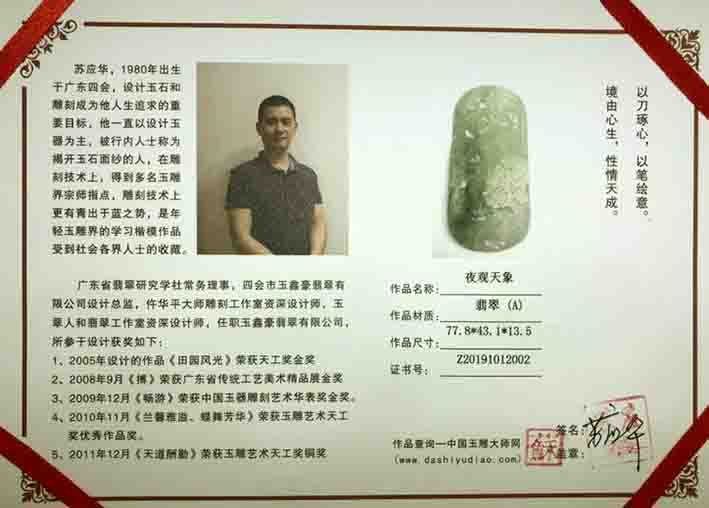 苏应华，1980年出生
于广东四会，设计玉石和
雕刻成为他人生追求的重
要目标，他一直以设计玉
器为主，被行内人士称为
揭开玉石面纱的人，在雕
刻技术上，得到多名玉雕
界宗师指点，雕刻技术上
更有青出于蓝之势，是年
轻玉雕界的学习楷模作品
受到社会各界人士的收藏。
广东省翡翠研究学社常务理事，四会市玉鑫豪翡翠有
限公司设计总监，仵华平大师雕刻工作室资深设计师，玉
翠人和翡翠工作室资深设计师，任职玉鑫豪翡翠有限公司，
所参于设计获奖如下：
1、2005年设计的作品《田园风光》荣获天工奖金奖
2、2008年9月《博》荣获广东省传统工艺美术精品展金奖
3、2009年12月《畅游》荣获中国玉器雕刻艺术华表奖金奖。
4、2010年11月《兰馨雅溢、蝶舞芳华》荣获玉雕艺术天工
奖优秀作品奖。
5、2011年12月《天道酬勤》荣获玉雕艺术天工奖铜奖
以刀琢心，以笔绘意。
境由心生，性情天成。
作品名称：夜观天象
作品材质：翡翠（A）
作品尺寸：77.8*43.1*13.5
证书号：Z20191012002
签名：苏应华
盖章：
作品查询—中国玉雕大师网
(www.dashiyudiao.com)